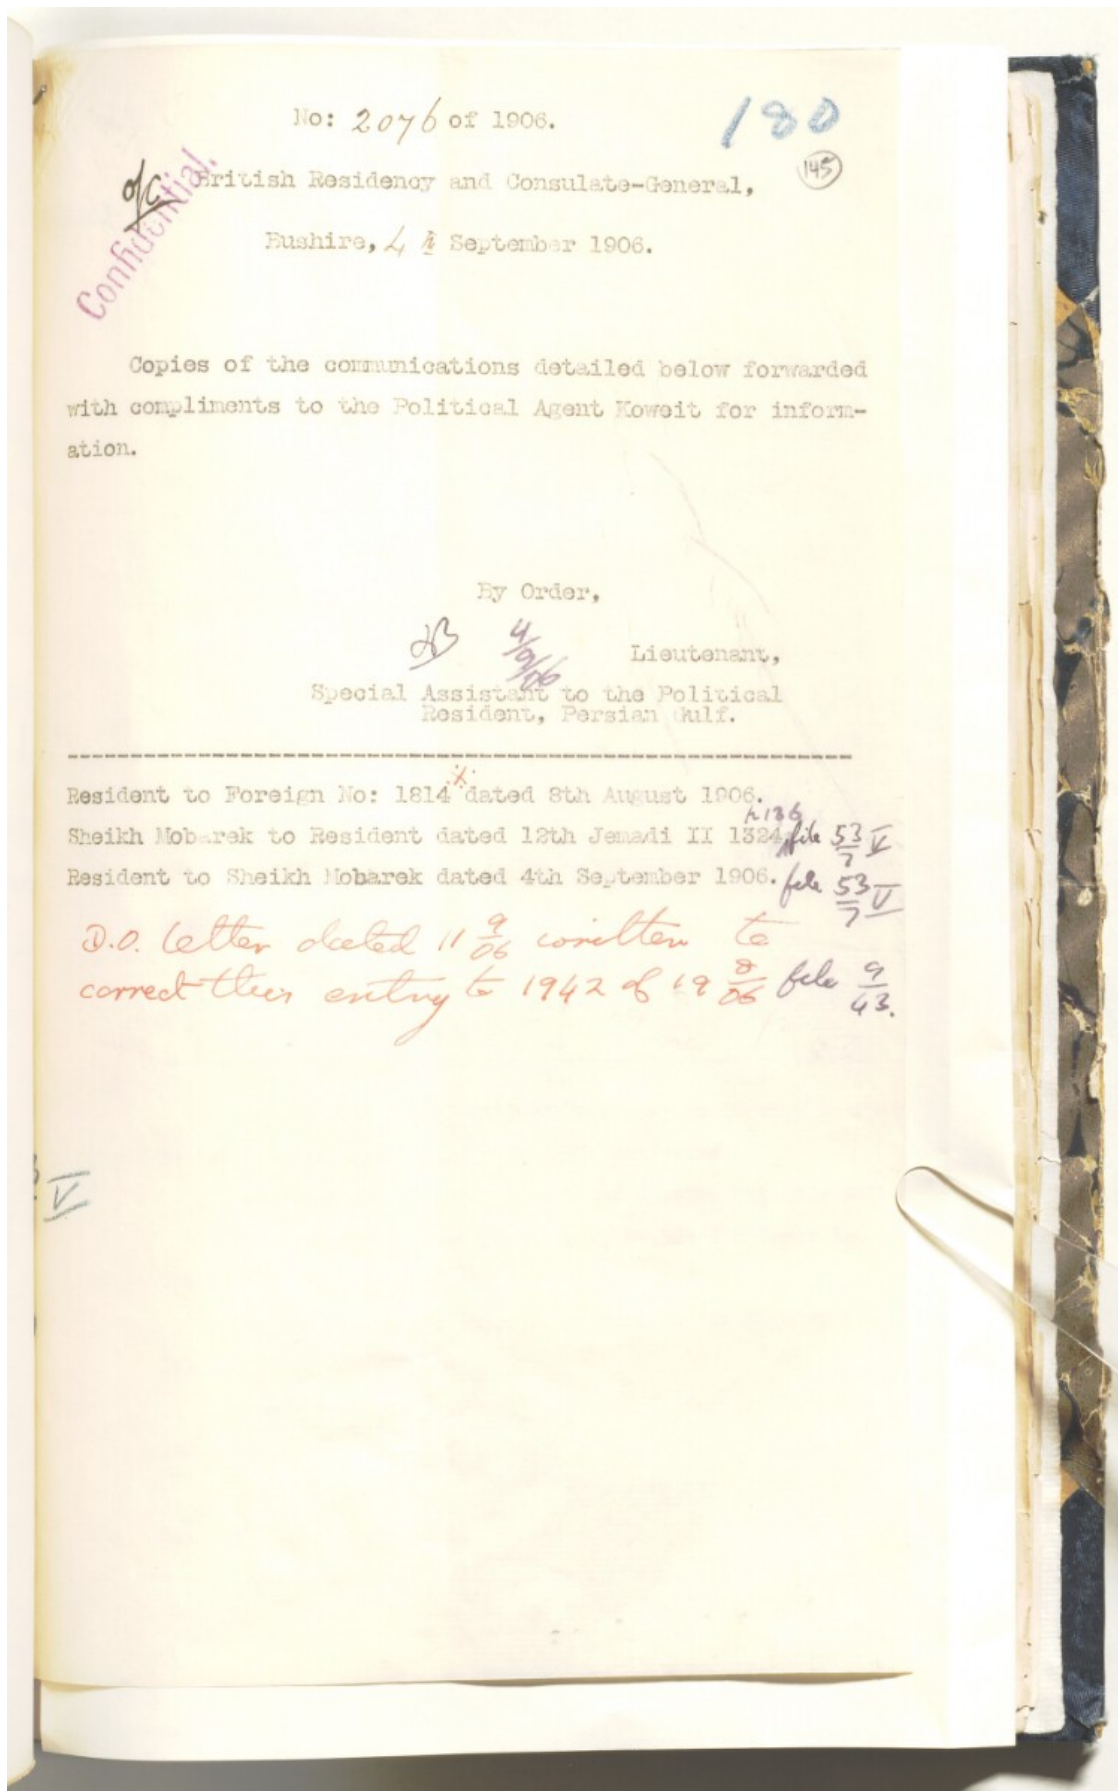 180
145
No: 2076 of 1906.
o/c
Confidential.
British Residency and Consulate-General,
Bushire, 4th September 1906.
Copies of the communications detailed below forwarded
with compliments to the Political Agent Koweit for inform-
ation.
By Order,
4/9/06
Lieutenant,
Special Assistant to the Political
Resident, Persian Gulf.
Resident to Foreign No: 1814 x dated 8th August 1906.
p 136
Sheikh Mobarek to Resident dated 12th Jemadi II 1324. file 53/7 V
Resident to Sheikh Mobarek dated 4th September 1906. file 53/7 V
D.O. letter dated 11 9/06 written to
correct this entry to 1942 of 19 8/06 file 9/43.
V